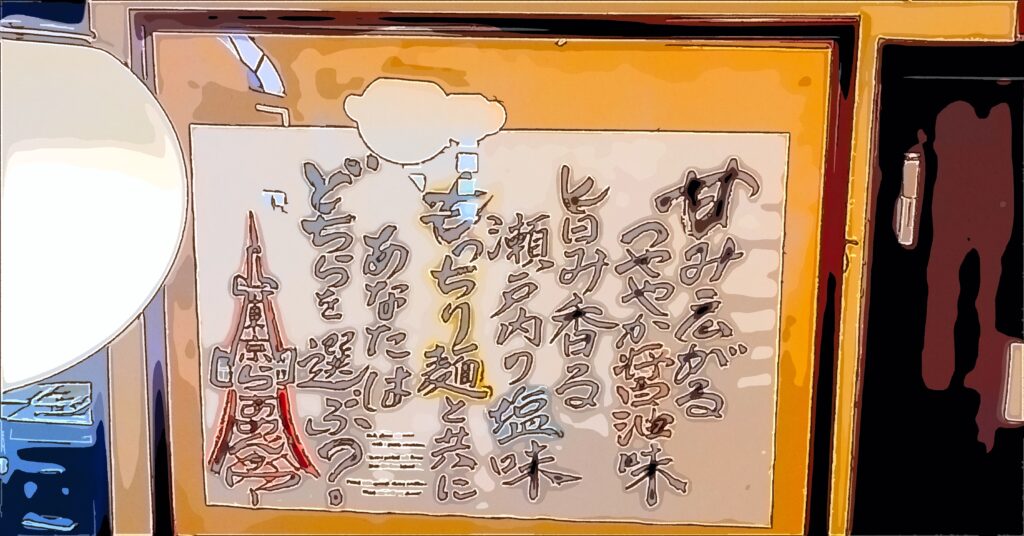 甘み広がる
つややか醤油味
旨み香る
瀬戸内の塩味
もっちり麺と共に
あなたは
どちらを選ぶ?
東京